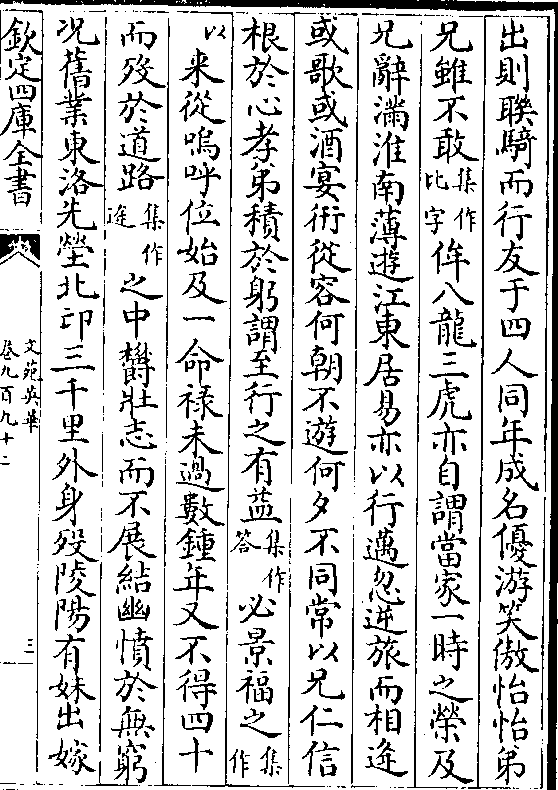 出則聨騎而行友于四人同年成名優游笑傲怡怡弟
兄雖不敢集作比字侔八龍三虎亦自謂當家一時之榮及
兄辭滿淮南薄遊江東居易亦以行邁忽逆旅而相逄
或歌或酒宴衎從容何朝不遊何夕不同常以兄仁信
根於心孝弟積於躬謂至行之有益集作答必景福之集作
以来從嗚呼位始及一命祿未過數鍾年又不得四十
而歿於道路集作途之中欝壯志而不展結幽憤於無窮
况舊業東洛先塋北邙三千里外身歿陵陽有妹出嫁
欽定四庫全書
文苑英華
卷九百九十二
三